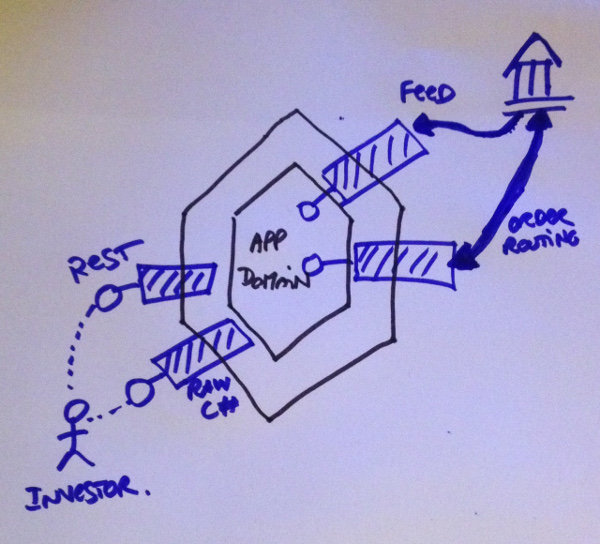 FEED
ORDER
ROUTING
APP
DOMAIN
REST
RAW
C#
INVESTOR.